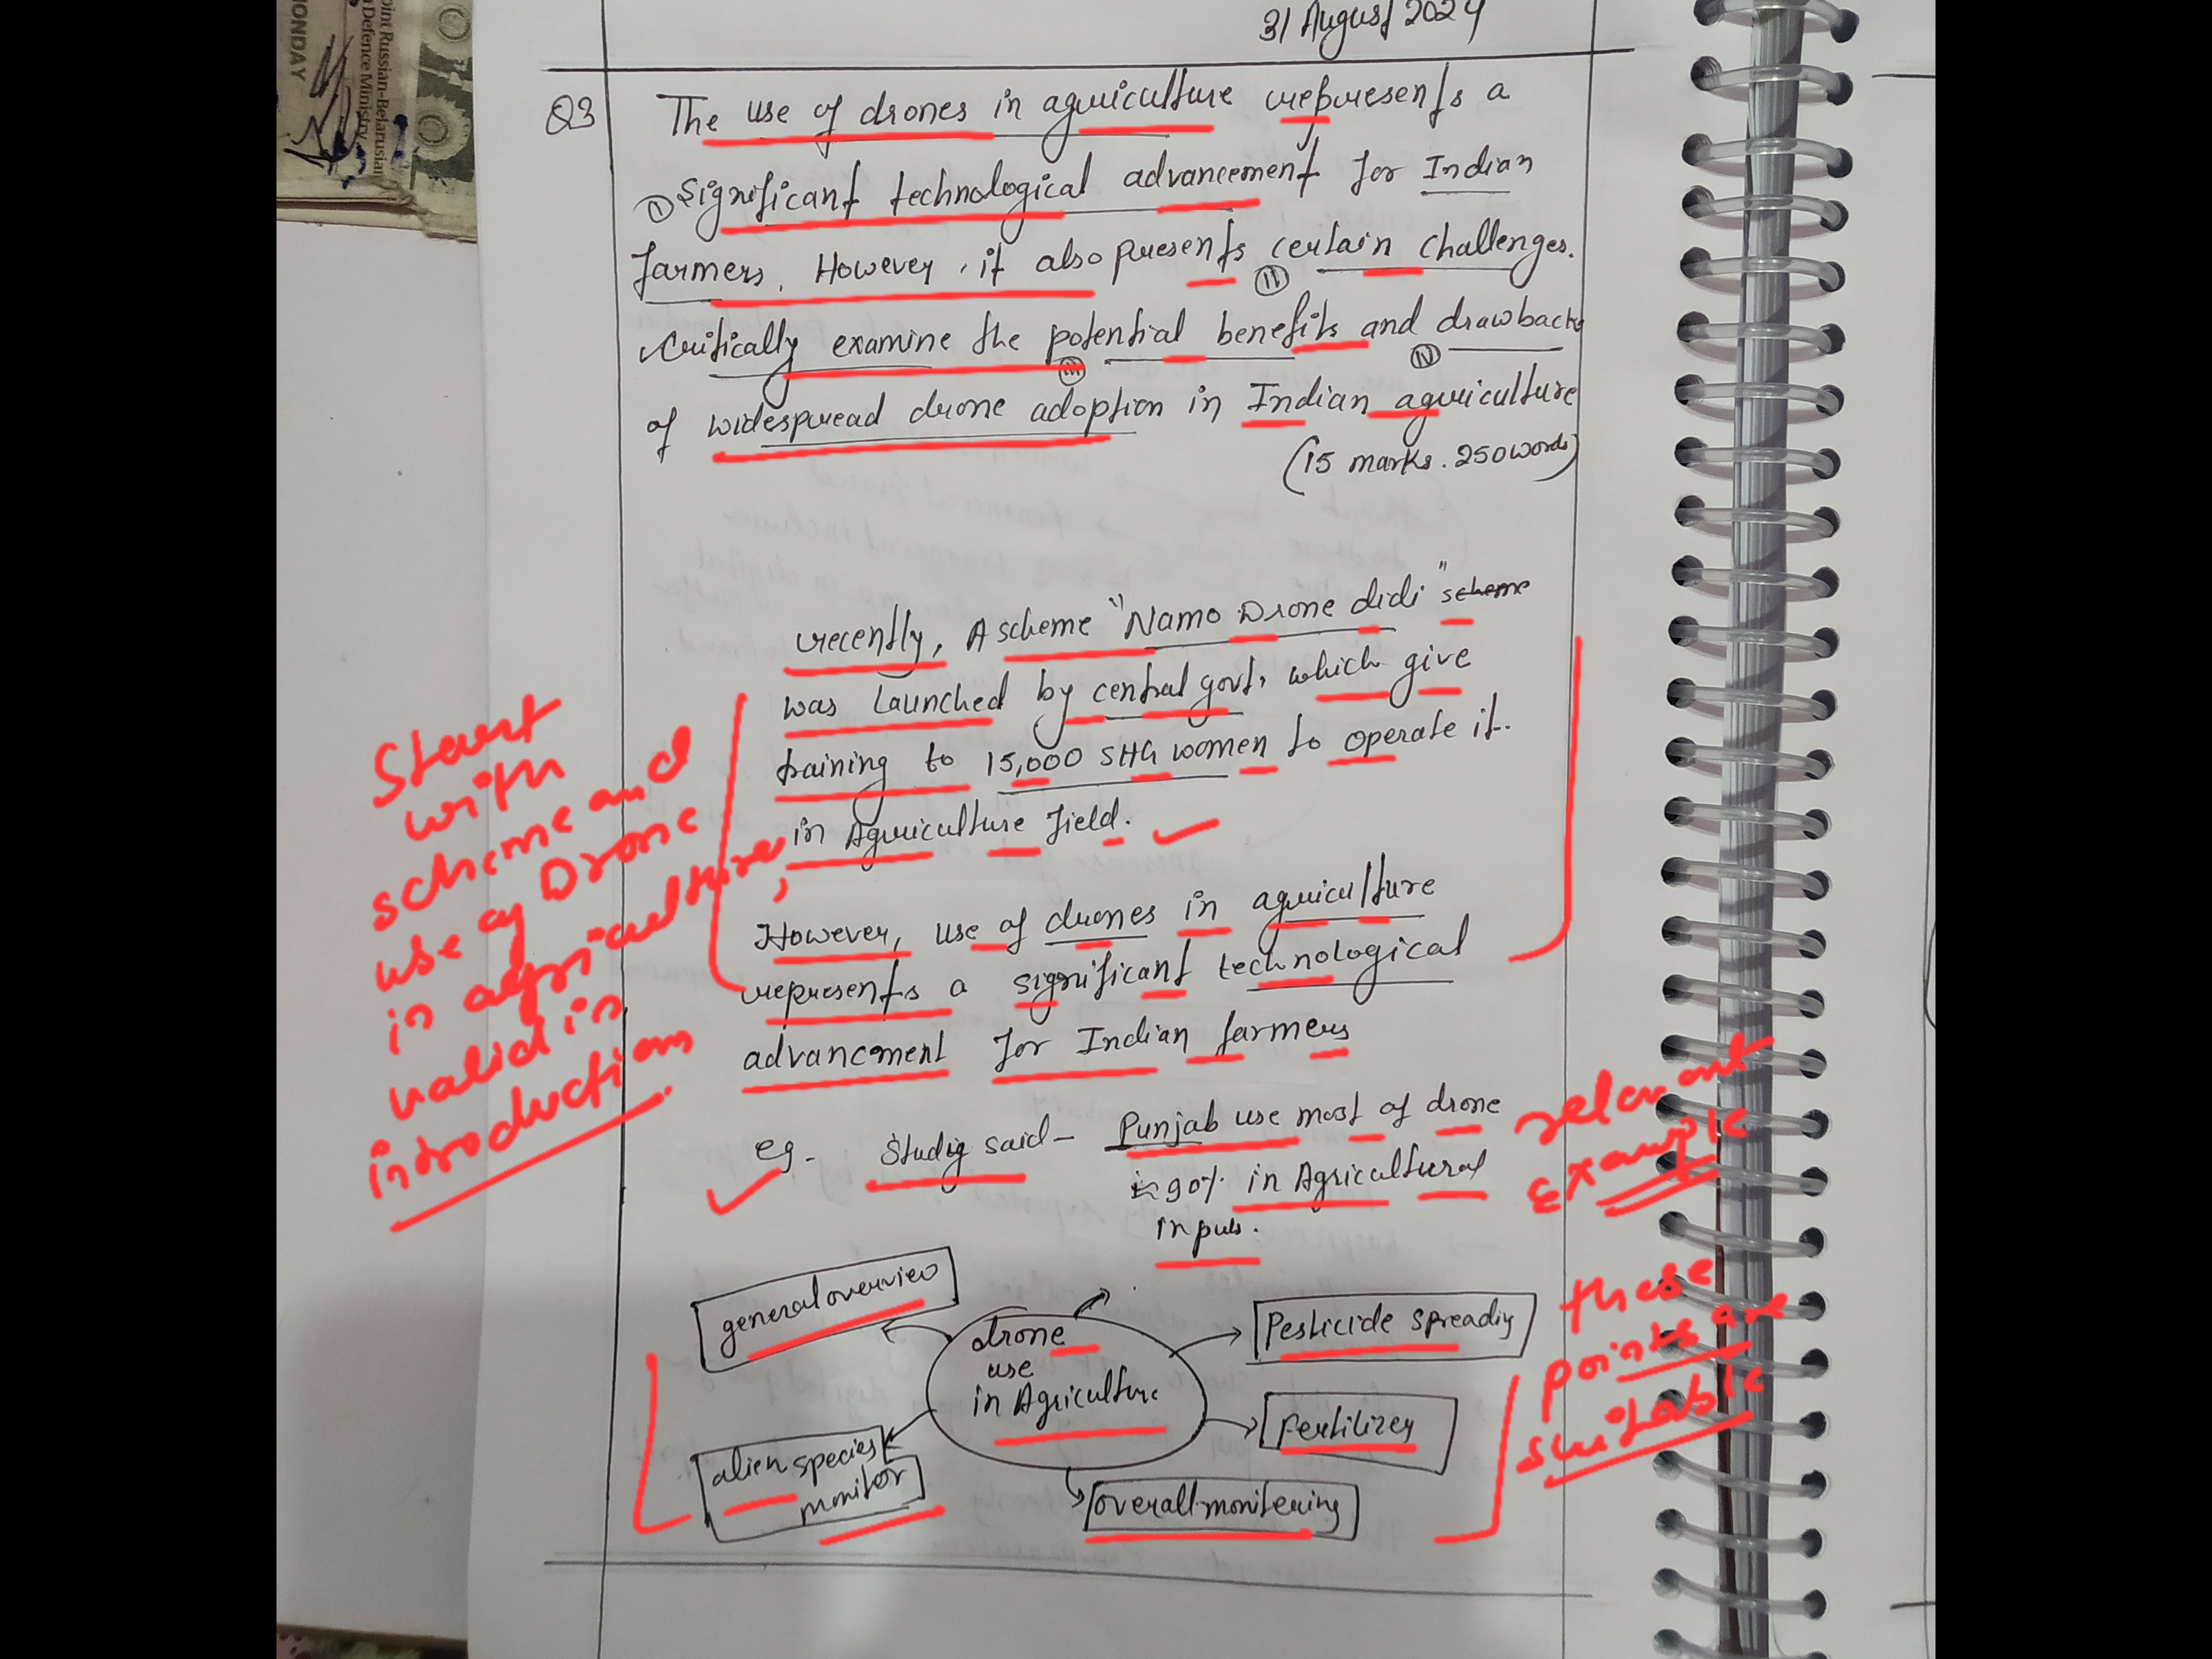 31 August 2024
oint Russian-Belarusian
Defence Ministry
MONDAY
Q3 The use of drones in agriculture represents a
① Significant technological advancement for Indian
farmers. However, it also presents certain challenges.
②
Critically examine the potential benefits and drawbacks
③ ④
of widespread drone adoption in Indian agriculture
(15 marks. 250 words)
recently, A scheme "Namo Drone didi" scheme
was launched by central govt, which give
training to 15,000 SHG women to operate it.
in Agriculture field.
However, use of drones in agriculture
represents a significant technological
advancement for Indian farmers
eg- Studig said - Punjab use most of drone
in 90% in Agricultural
inputs.
Start
with
scheme and
use of Drone
in agriculture,
valid in
introduction
relevant
Example
general overview
drone
use
in Agriculture
Pesticide spreadig
Fertilizer
alien species
monitor
overall monitering
these
points are
suitable